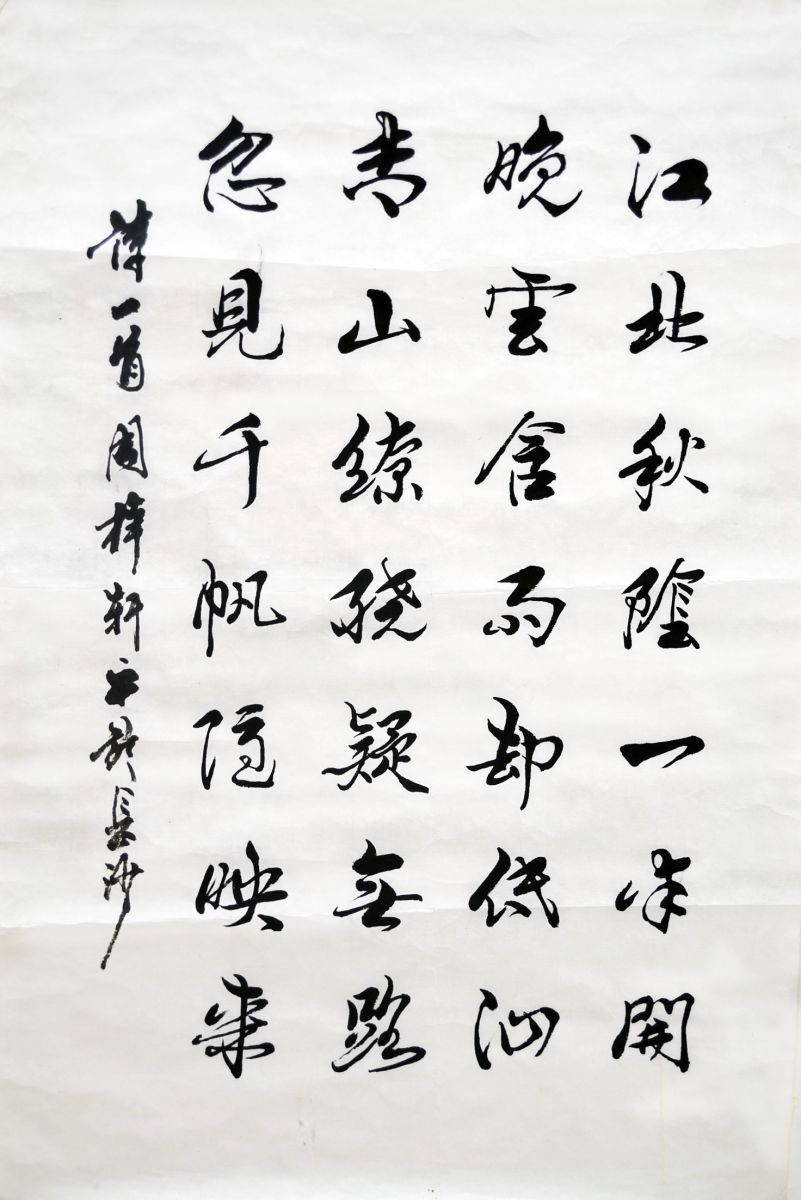 江北秋陰一半開
晚雲含雨却低徊
青山繚繞疑無路
忽見千帆隱映來
律一首周梓軒於長沙